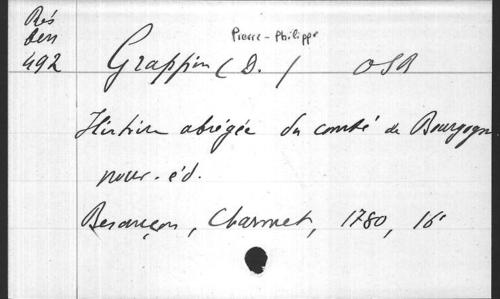 Rés
Pierre-Philippe
492 Grappin (D.) OSB
Histoire abrégée du comté de Bourgogne
nouv. éd.
Besançon, Charmet, 1780, 16°